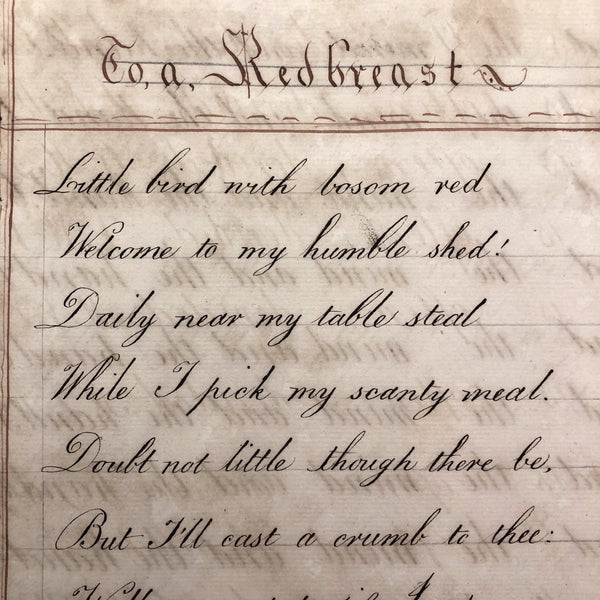 To, a, Redbreast
Little bird with bosom red
Welcome to my humble shed!
Daily near my table steal
While I pick my scanty meal.
Doubt not little though there be,
But I'll cast a crumb to thee: